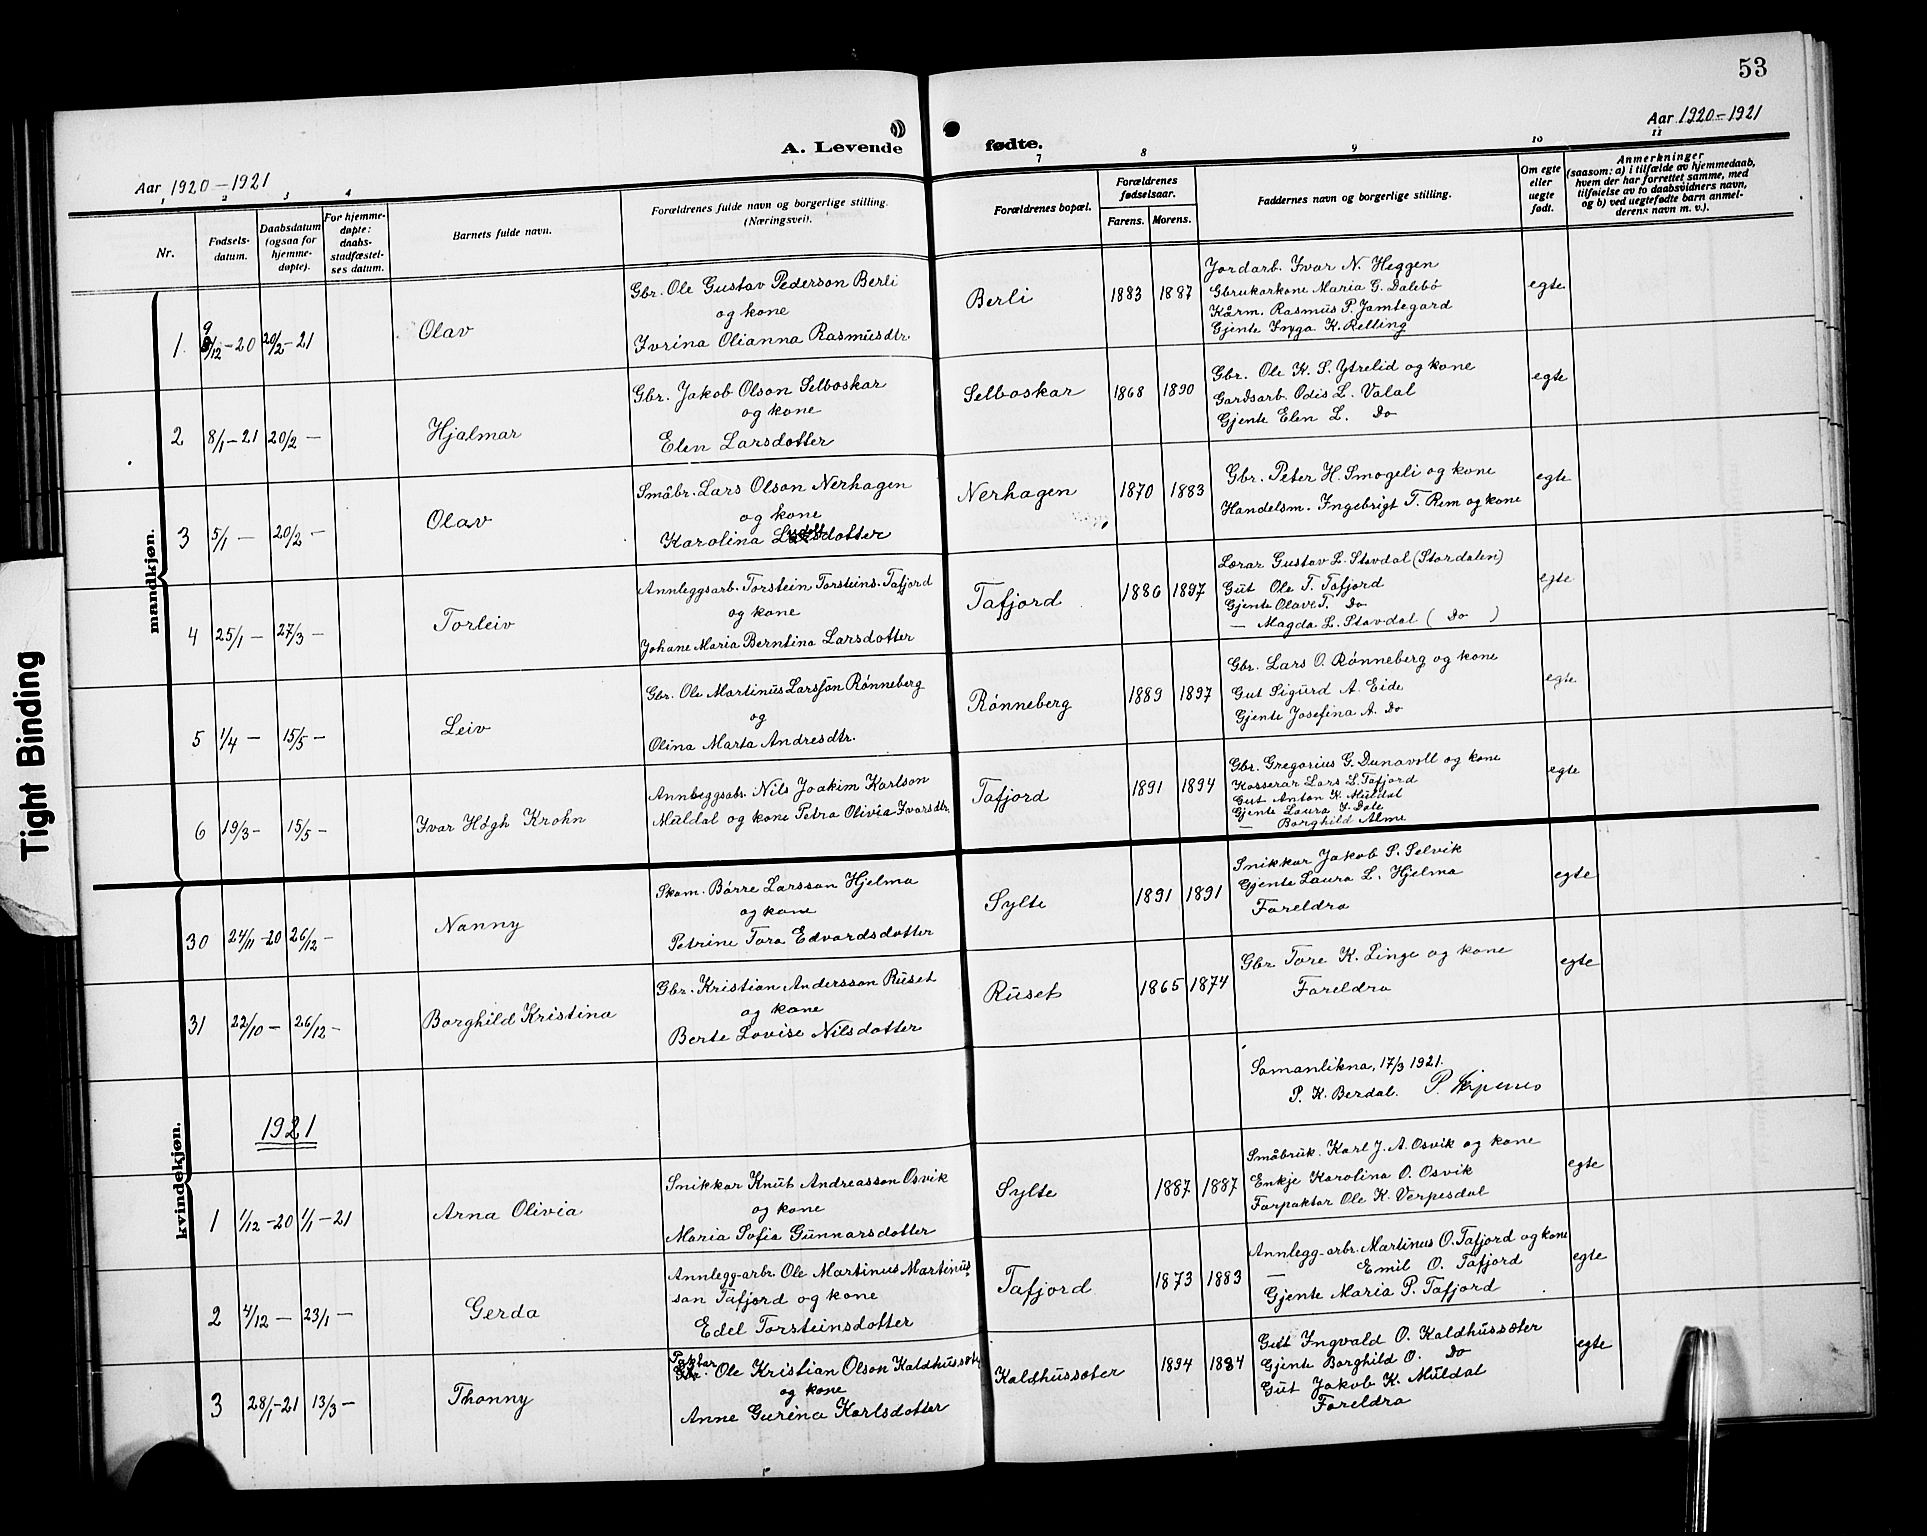 53
Aar 1920-1921
Aar 1920-1921
A. Levende fødte.
1 2 3 4 7 8 9 10 11
Nr.
Fødsels-
datum.
Daabsdatum
(ogsaa for
hjemme-
døpte).
For hjemme-
døpte:
daabs-
stadfæstel-
ses datum.
Barnets fulde navn.
Forældrenes fulde navn og borgerlige stilling.
(Næringsvei).
Forældrenes bopæl.
Forældrenes
fødselsaar.
Farens. Morens.
Faddernes navn og borgerlige stilling.
Om egte
eller
uegte
født.
Anmerkninger
(saasom: a) i tilfælde av hjemmedaab,
hvem der har forrettet samme, med
tilføielse av to daabsvidners navn,
og b) ved uegtefødte barn anmel-
derens navn m. v.).
mandkjøn.
1 9/12-20 20/2-21 Olav
Gbr. Ole Gustav Pederson Berli
og kone
Ivrina Olianna Rasmusdtr.
Berli 1883 1887
Jordarb. Ivar N. Heggen
Gbrukarkone Maria G. Dalebö
Kårm. Rasmus P. Jamtegard
Gjente Inga K. Relling
egte
2 8/1-21 20/2 - Hjalmar
Gbr. Jakob Olson Selboskar
og kone
Elen Larsdotter
Selboskar 1868 1890
Gbr. Ole K. S. Ytrelid og kone
Gardsarb. Odis L. Valal
Gjente Elen L. Do
egte
3 5/1 - 20/2 - Olav
Småbr. Lars Olson Nerhagen
og kone
Karolina Larsdotter
Nerhagen 1870 1883
Gbr. Peter H. Smogeli og kone
Handelsm. Ingebrigt T. Rem og kone
egte
4 25/1 - 27/3 - Torleiv
Annleggsarb. Torstein Torsteins. Tafjord
og kone
Johane Maria Berntina Larsdotter
Tafjord 1886 1897
Lærar Gustav L. Stavdal (Stordalen)
Gut Ole T. Tafjord
Gjente Olave T. Do
- Magda L. Stavdal ( Do )
egte
5 1/4 - 15/5 - Leiv
Gbr. Ole Martinus Larsson Rønneberg
og
Olina Marta Andresdtr.
Rønneberg 1889 1897
Gbr. Lars O. Rønneberg og kone
Gut Sigurd A. Eide
Gjente Josefina A. Do
egte
6 19/3 - 15/5 - Ivar Høgh Krohn
Annleggsabr. Nils Joakim Karlson
Muldal og kone Petra Olivia Ivarsdtr.
Tafjord 1891 1894
Gbr. Gregorius G. Dunavoll og kone
Kasserar Lars L. Tafjord
Gut Anton K. Muldal
Gjente Laura I. Dale
- Borghild Alme
egte
kvindekjøn.
30 24/11-20 26/12 - Nanny
Skom. Børre Larsson Hjelma
og kone
Petrine Tora Edvardsdotter
Sylte 1891 1891
Snikkar Jakob S. Selvik
Gjente Laura L. Hjelma
Foreldra
egte
31 22/10 - 26/12 - Borghild Kristina
Gbr. Kristian Andersson Ruset
og kone
Berte Lovise Nilsdotter
Ruset 1865 1874
Gbr Tore K. Linge og kone
Foreldra
egte
Samanlikna, 17/3 1921.
P. K. Berdal.
1921
1 1/12-20 1/1-21 Arna Olivia
Snikkar Knut Andreasson Osvik
og kone
Maria Sofia Gunnarsdotter
Sylte 1887 1887
Småbruk. Karl J. A. Osvik og kone
Enkje Karolina O. Osvik
Forpaktar Ole K. Verpesdal
egte
2 4/12 - 23/1 - Gerda
Annlegg-arbr. Ole Martinus Martinus-
son Tafjord og kone
Edel Torsteinsdotter
Tafjord 1873 1883
Annlegg-arbr. Martinus O. Tafjord og kone
- Emil O. Tafjord
Gjente Maria P. Tafjord
egte
3 28/1-21 13/3 - Thonny
Paktar
Gbr. Ole Kristian Olson Kaldhussæter
og kone
Anne Gurina Karlsdotter
Kaldhussæter 1894 1884
Gut Ingvald O. Kaldhussæter
Gjente Borghild O. Do
Gut Jakob K. Muldal
Foreldra
egte
Tight Binding